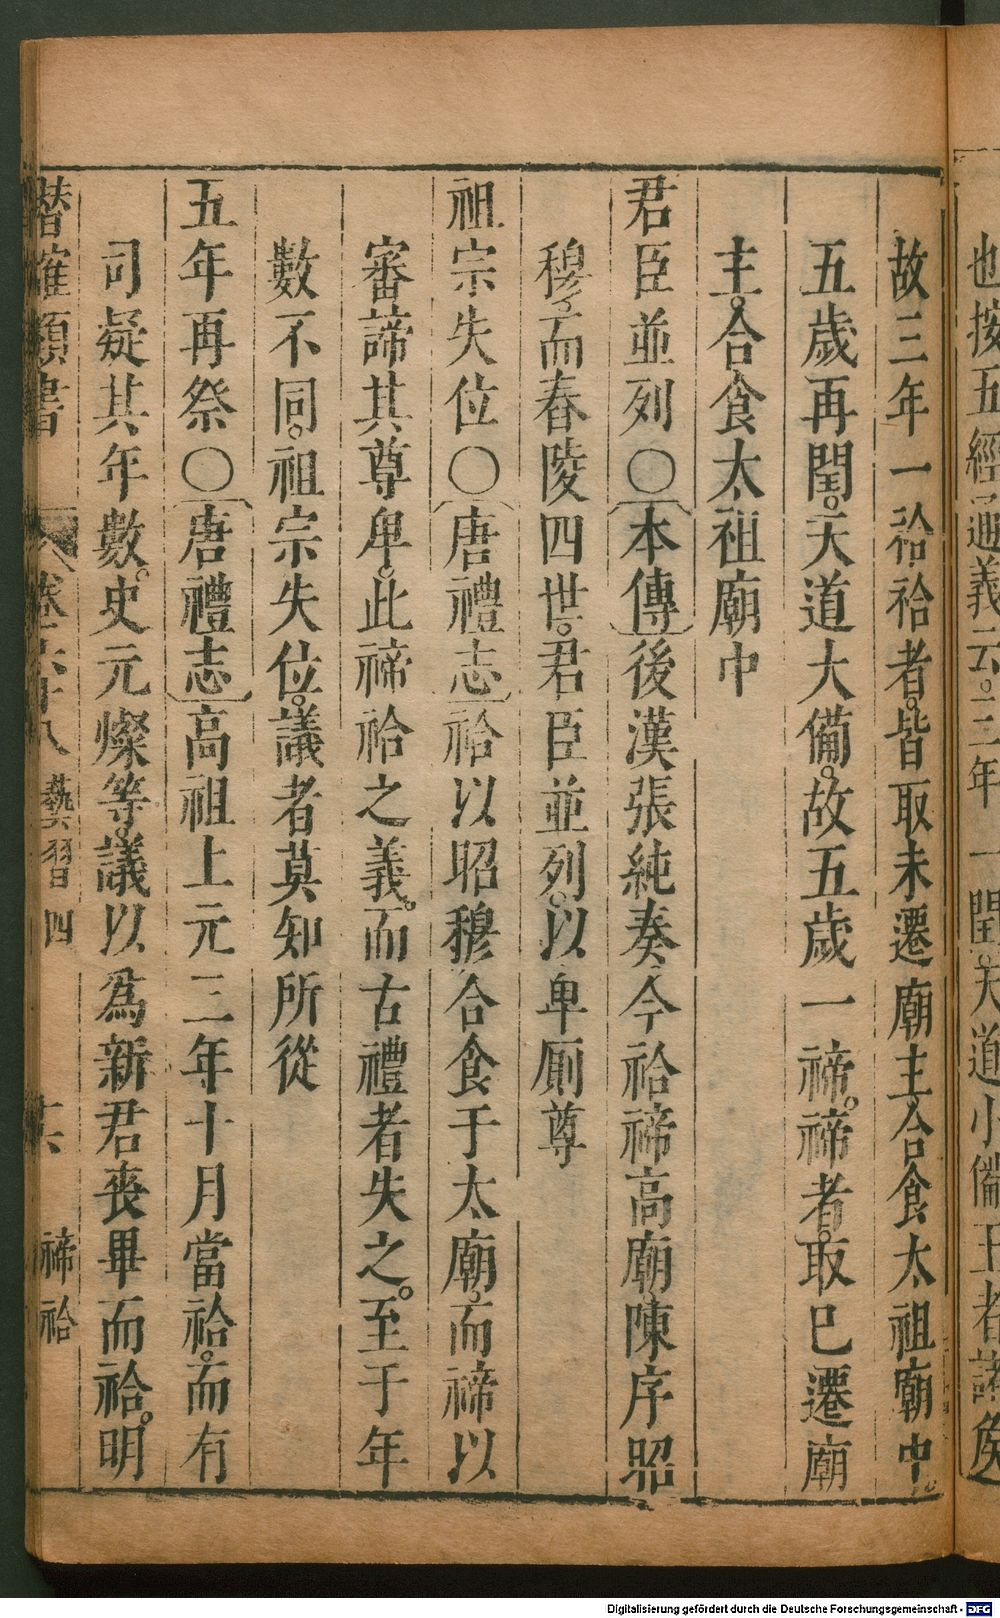 也按五經通義云。三年一閏。天道小備王者諸侯
故三年一祫祫者。皆取未遷廟主合食太祖廟中。
五歲再閏。天道大備。故五歲一禘。禘者。取巳遷廟
主。合食太祖廟中
君臣並列〇〔本傳〕後漢張純奏今祫禘高廟陳序昭
穆。而舂陵四世。君臣並列。以卑厠尊
祖宗失位〇〔唐禮志〕祫以昭穆合食于太廟。而禘以
審諦其尊卑。此禘祫之義。而古禮者失之。至于年
數不同。祖宗失位。議者莫知所從
五年再祭〇〔唐禮志〕高祖上元三年十月當祫。而有
司疑其年數。史元燦等。議以爲新君喪畢而祫。明
潛確類書 卷六十八 藝習四 十六 禘祫
Digitalisierung gefördert durch die Deutsche Forschungsgemeinschaft - DFG